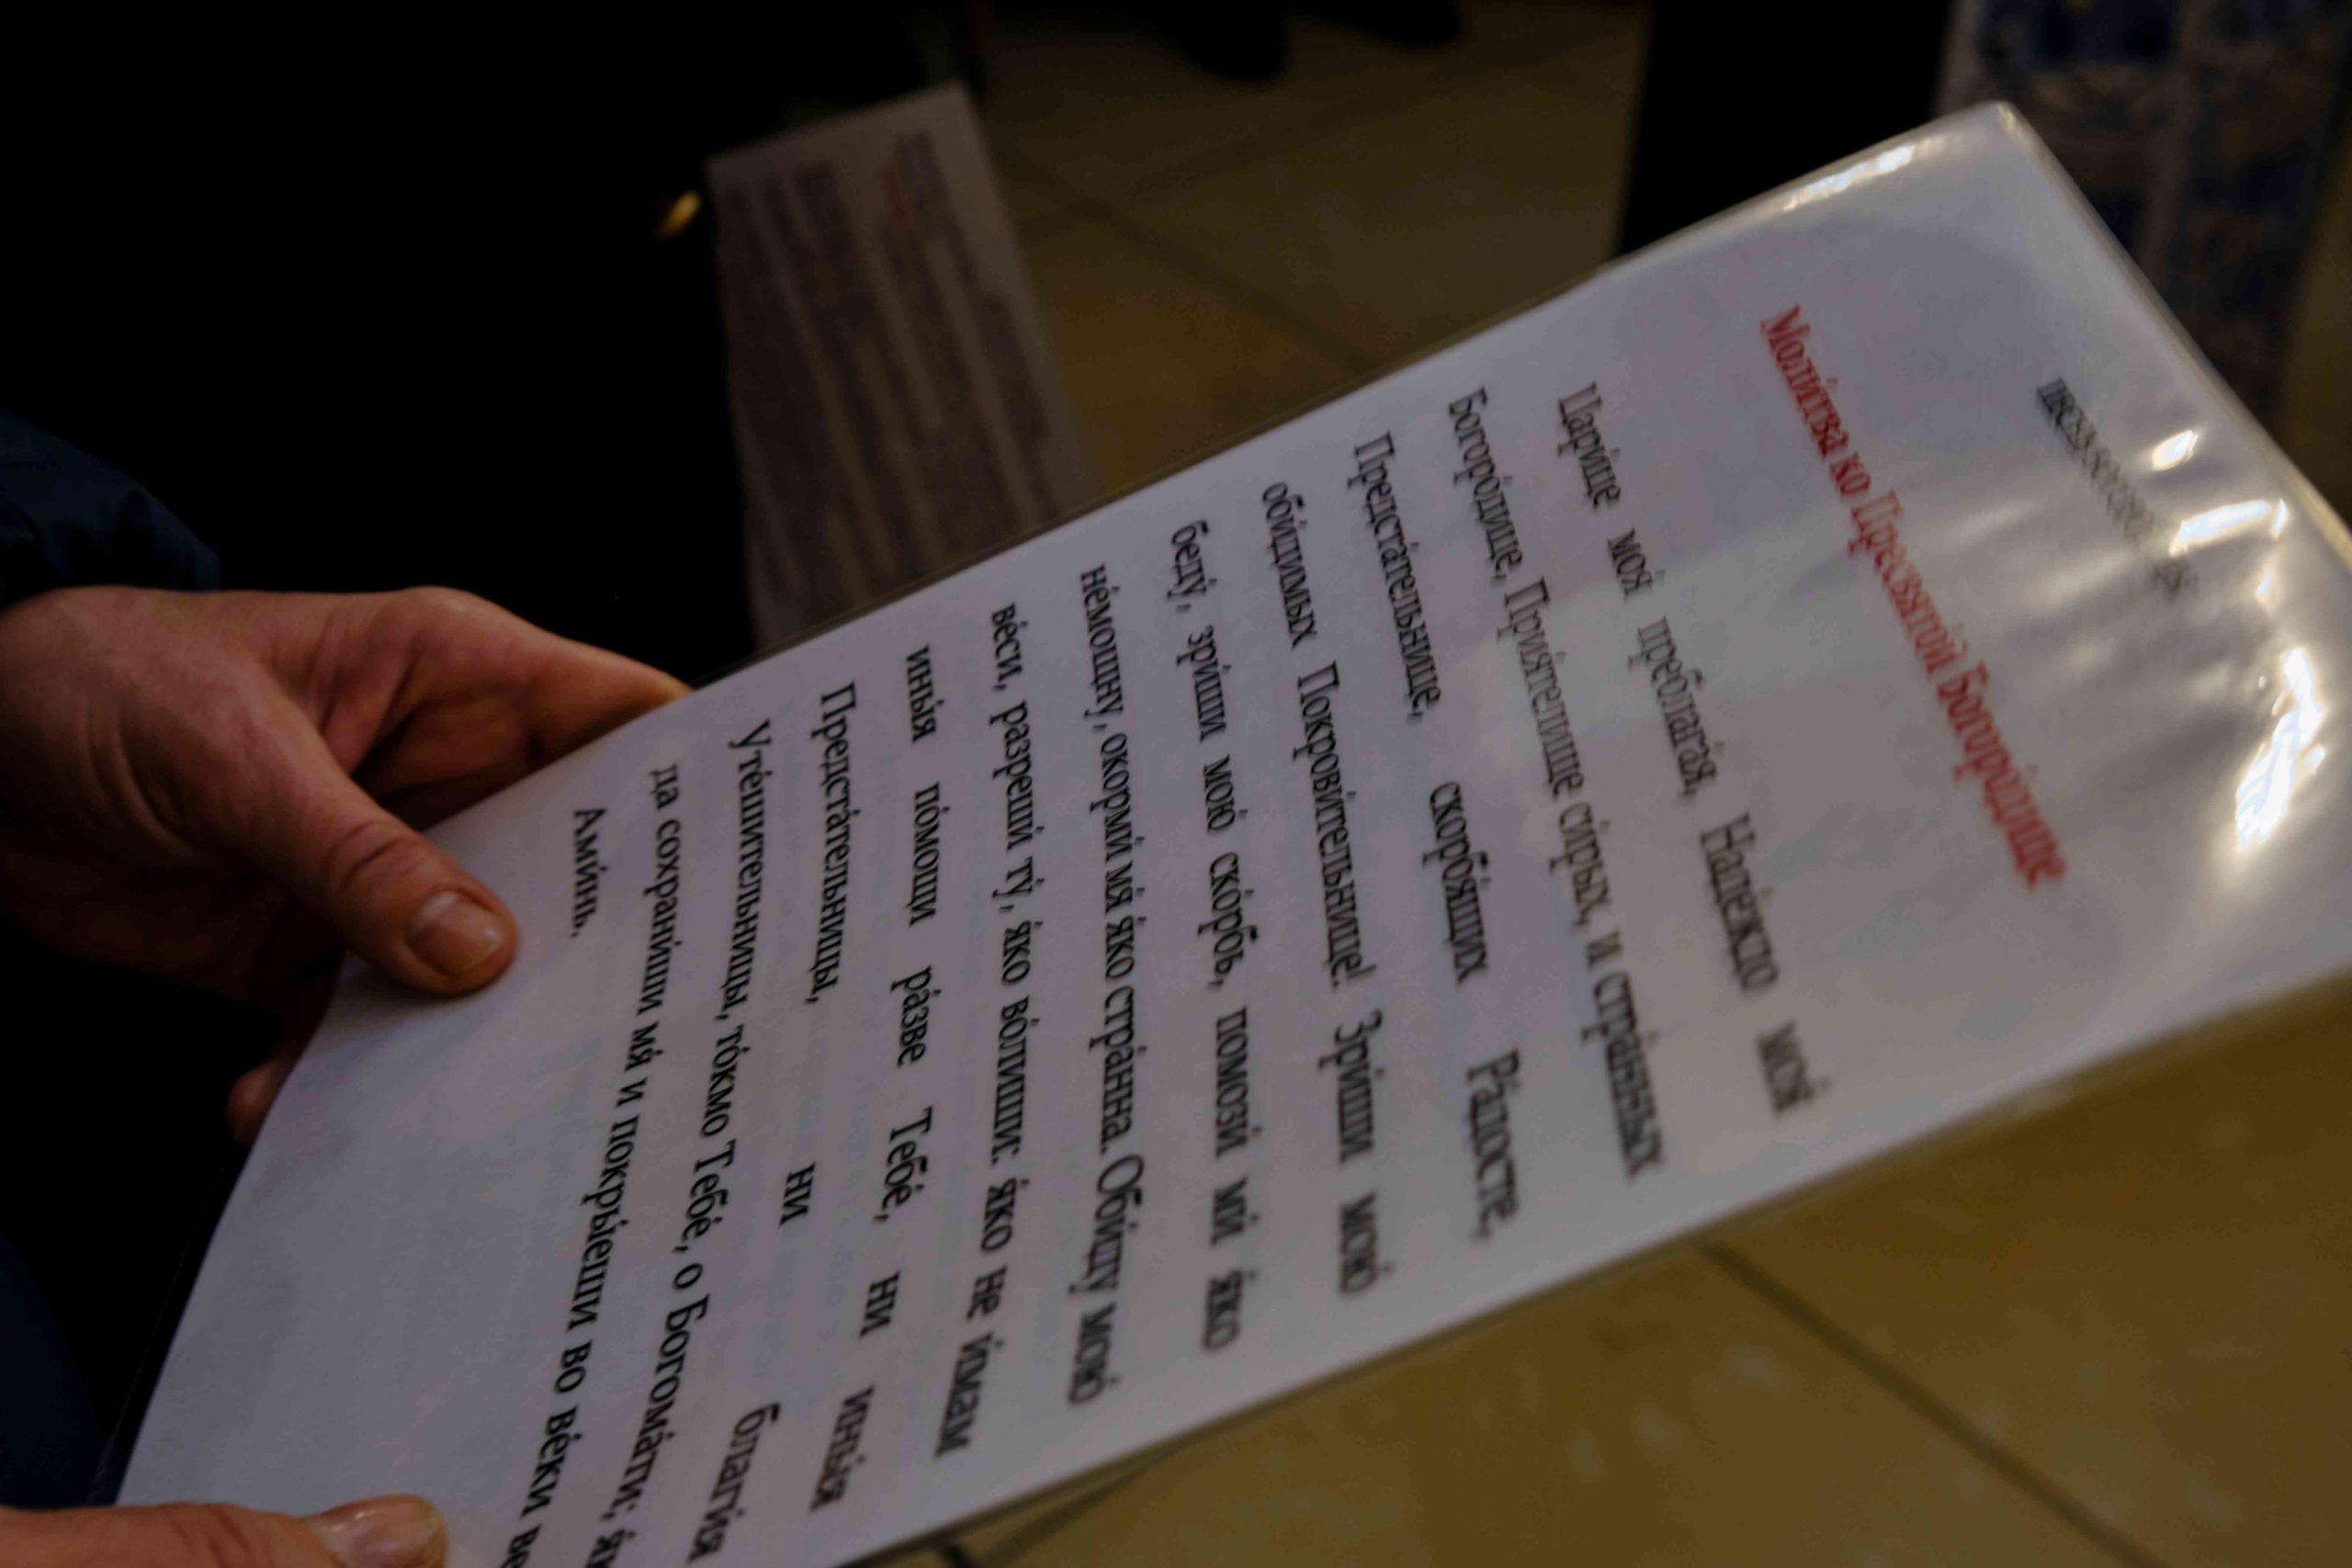 Моли́тва ко Пресвято́й Богоро́дице
Цари́це моя́ преблага́я, Наде́ждо моя́
Богоро́дице, Прия́телище си́рых, и стра́нных
Предста́тельнице, скорбя́щих Ра́досте,
оби́димых Покрови́тельнице! Зри́ши мою́
беду́, зри́ши мою́ ско́рбь, помози́ ми́ я́ко
не́мощну, окорми́ мя́ я́ко стра́нна. Оби́ду мою́
ве́си, разреши́ ту́, я́ко во́лиши: я́ко не и́мам
ины́я по́мощи ра́зве Тебе́, ни ины́я
Предста́тельницы, ни благи́я
Уте́шительницы, то́кмо Тебе́, о Богома́ти;
да сохрани́ши мя́ и покры́еши во ве́ки
Ами́нь.